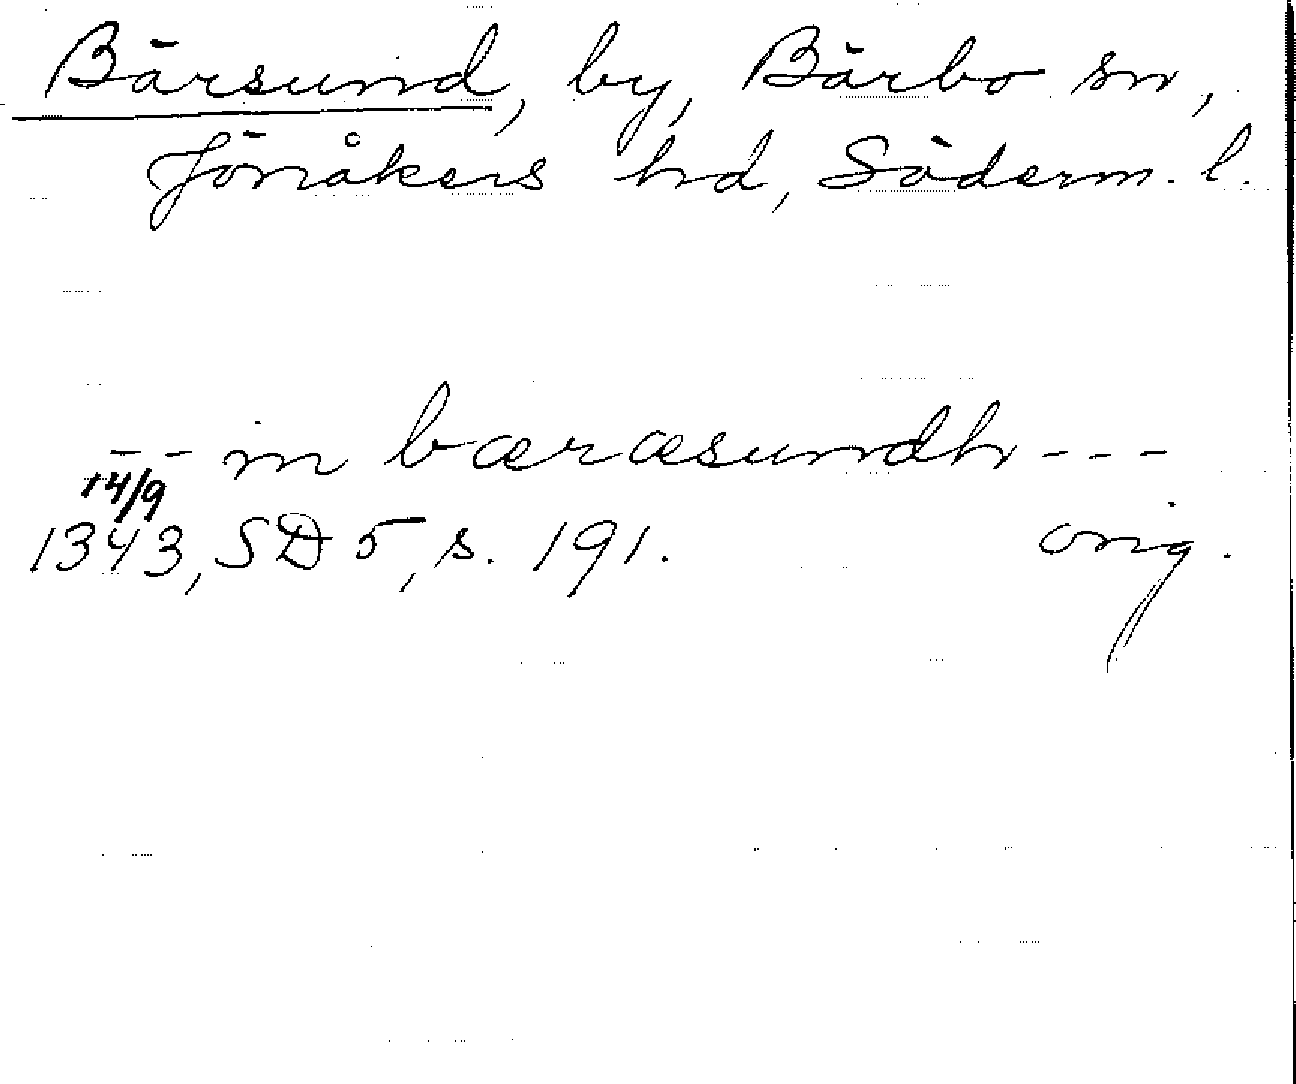 Bärsund, by, Bärbo sn,
Jönåkers hd, Söderm. l.
-- in bæræsundh ---
14/9
1343, SD 5, s. 191. orig.